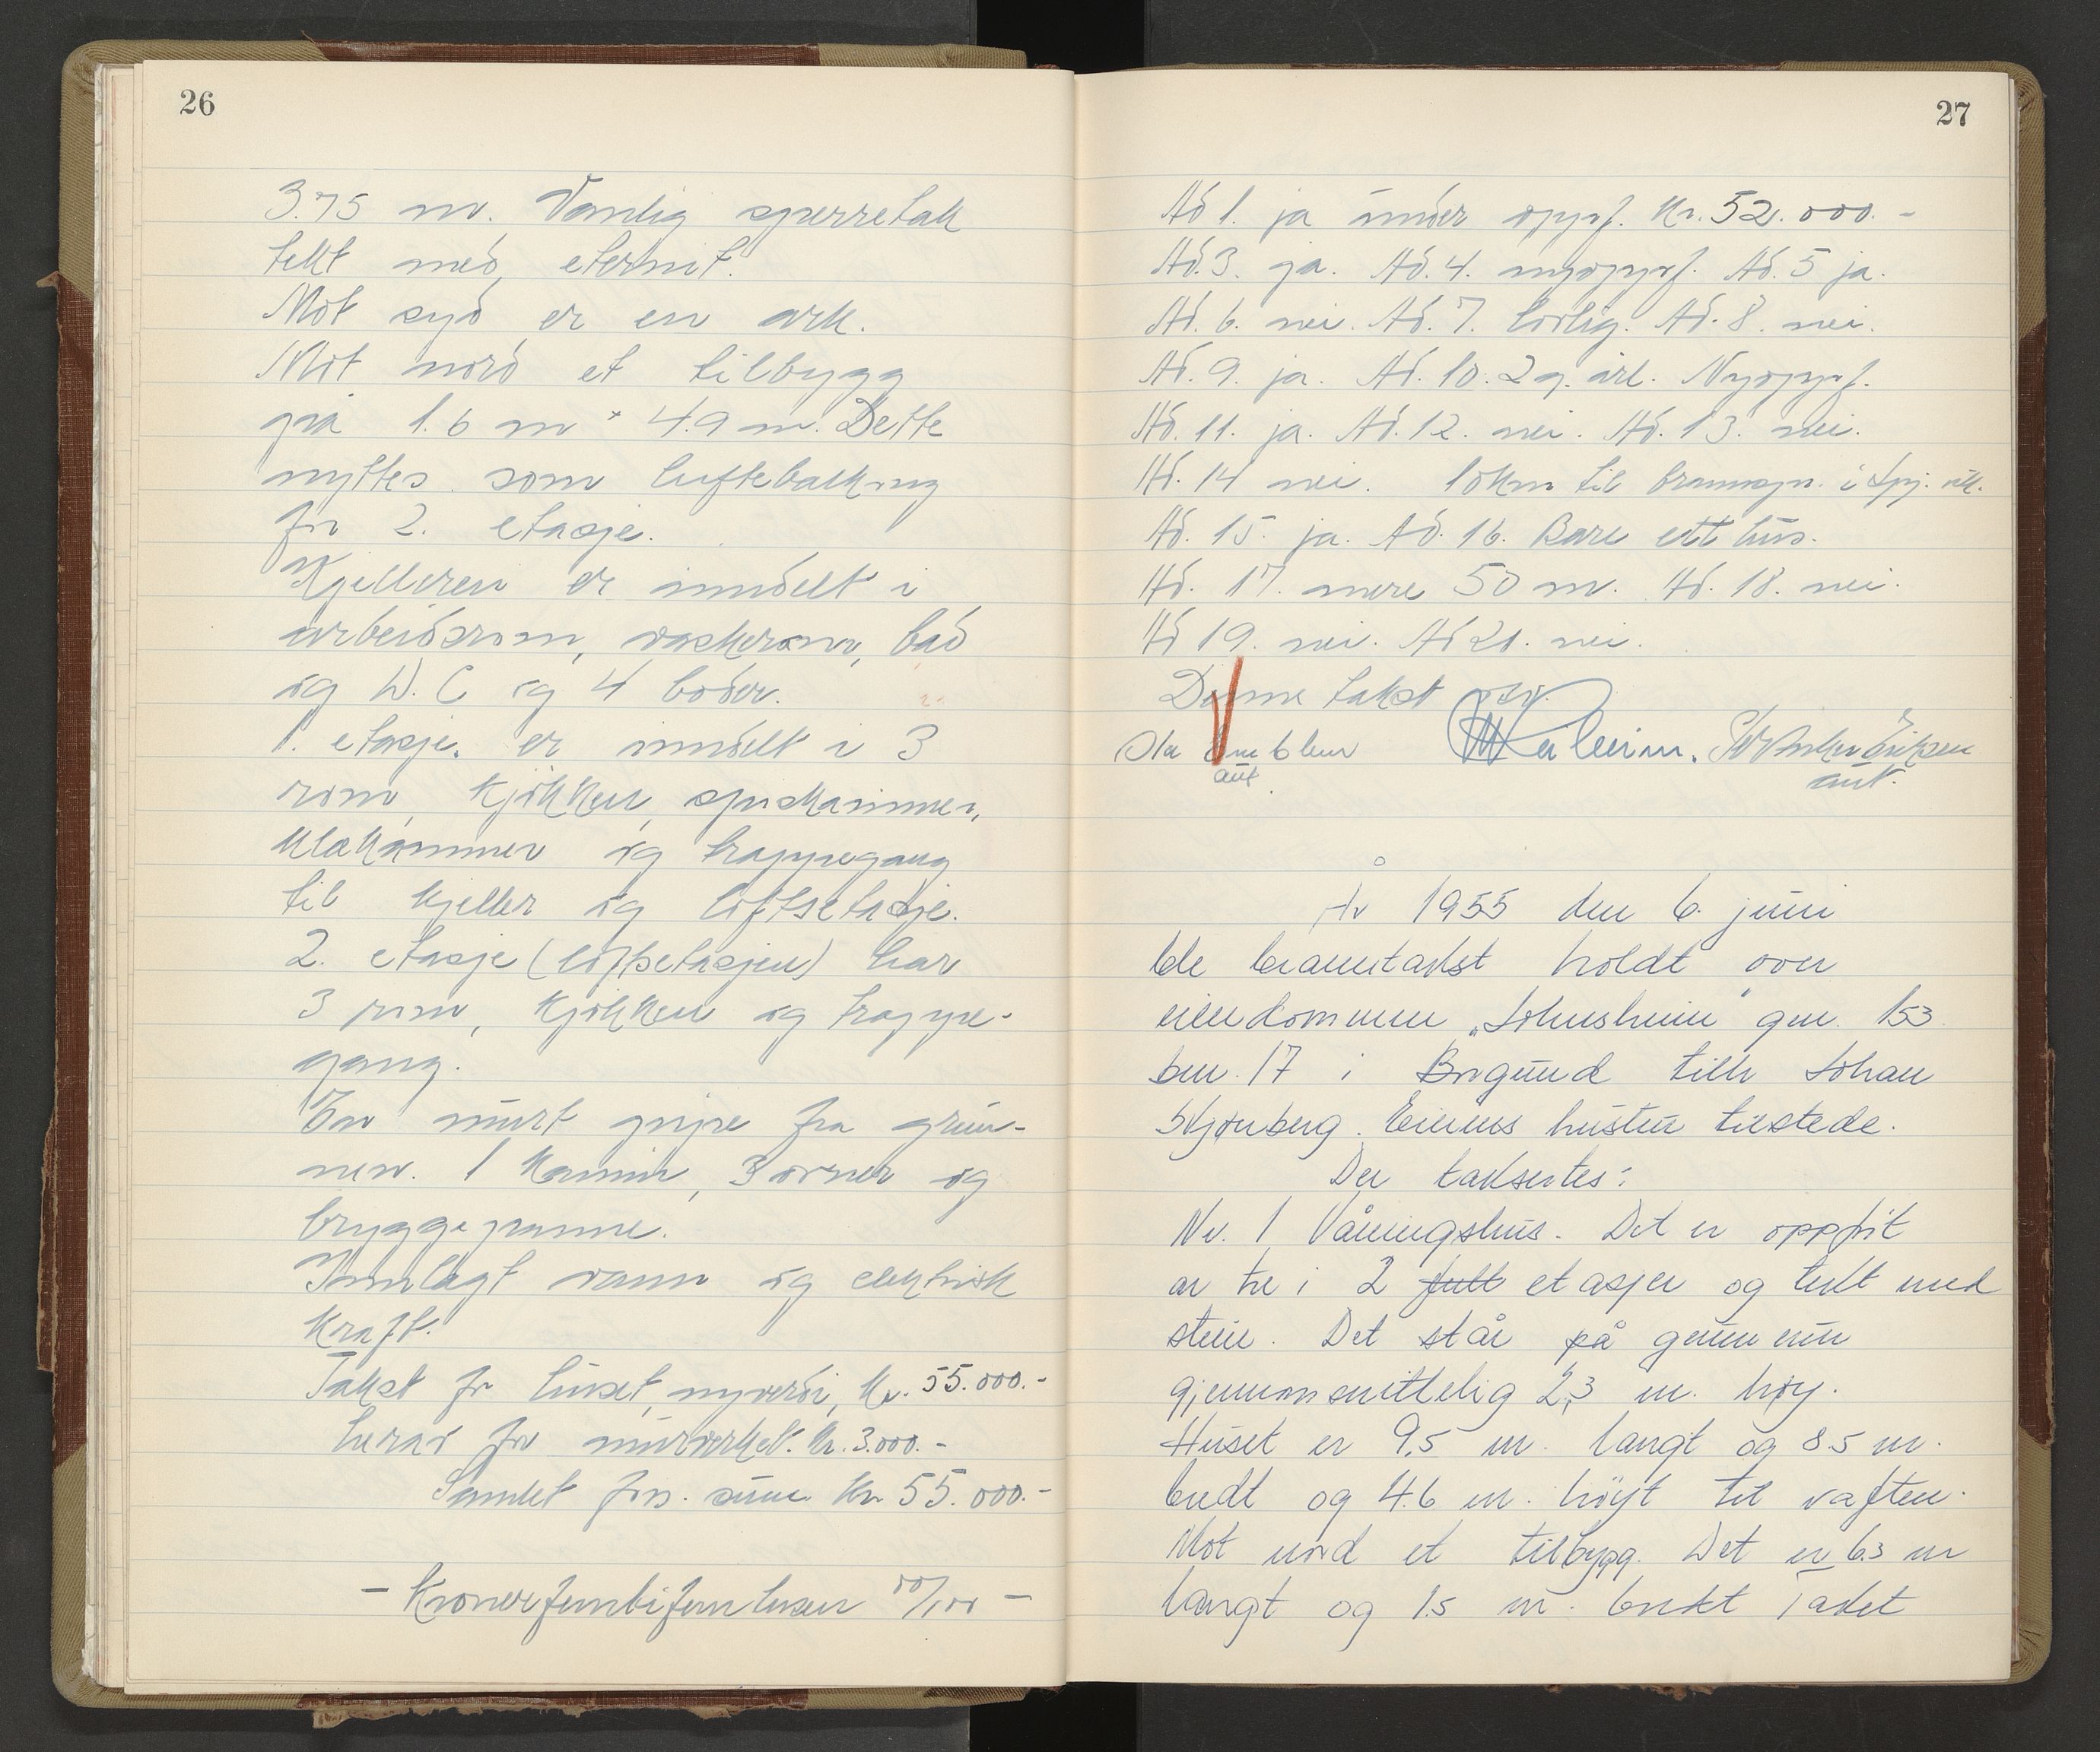 26
3.75 m. Vanlig sperretak
tekt med eternit.
Mot syd er en ark.
Mot nord et tilbygg
på 1.6 m × 4.9 m. Dette
nyttes som luftebalkong
for 2. etasje.
Kjelleren er inndelt i
arbeidsrom, vaskerom, bad
og W.C og 4 boder.
1. etasje er inndelt i 3
rom, kjøkken, spiskammer,
klekammer og trappegang
til kjeller og loftsetasje.
2. etasje (loftsetasjen) har
3 rom, kjøkken og trappe-
gang.
En murt pipe fra grun-
nen. 1 kamin, 3 ovner og
bryggepanne.
Innlagt vann og elektrisk
kraft.
Takst for huset, nyverdi, kr. 55.000.-
herav for murverket. kr. 3.000.-
Samlet fors. sum kr 55.000.-
- Kroner femtifemtusen 00/100 -
27
Ad 1. ja under oppf. kr. 52.000.-
Ad. 3. ja. Ad. 4. nyoppf. Ad. 5 ja.
Ad. 6. nei. Ad. 7. lovlig. Ad. 8. nei.
Ad. 9. ja. Ad. 10. 2 g. årl. Nyoppf.
Ad. 11. ja. Ad. 12. nei. Ad. 13. nei.
Ad. 14 nei. 10km til brannspr. i
Ad. 15. ja. Ad. 16. Bare ett hus.
Ad. 17. mere 50 m. Ad. 18. nei.
Ad 19. nei. Ad 21. nei.
Denne takst osv.
Ola
aut.
aut.
År 1955 den 6. juni
ble branntakst holdt over
eiendommen „Johnsheim" gnr. 153
bnr. 17 i Borgund tilh Johan
Skjønberg. Eierens hustru tilstede.
Der taksertes:
Nr. 1 Våningshus. Det er oppført
av tre i 2 full etasjer og tekt med
stein. Det står på grunnmur
gjennomsnittelig 2,3 m. høy.
Huset er 9,5 m. langt og 8.5 m.
bredt og 4.6 m. høyt til raften.
Mot nord et tilbygg. Det er 6.3 m
langt og 1.5 m. bredt Taket